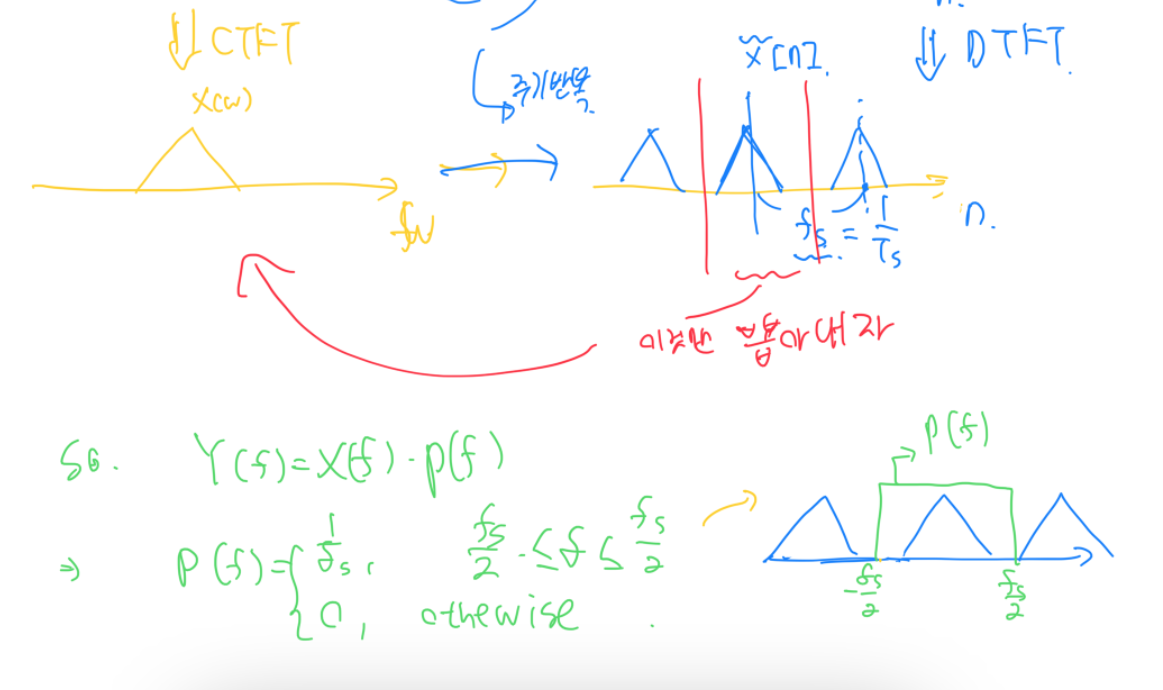 ⇓ CTFT
X(w)
fw
주기반복
x̃[n].
⇓ DTFT.
fs = 1/Ts
n.
이것만 뽑아내자
So. Y(f)=X(f)·p(f)
⇒ P(f)={ 1/fs, fs/2 ≤ f ≤ fs/2
0, othewise .
P(f)
-fs/2
fs/2